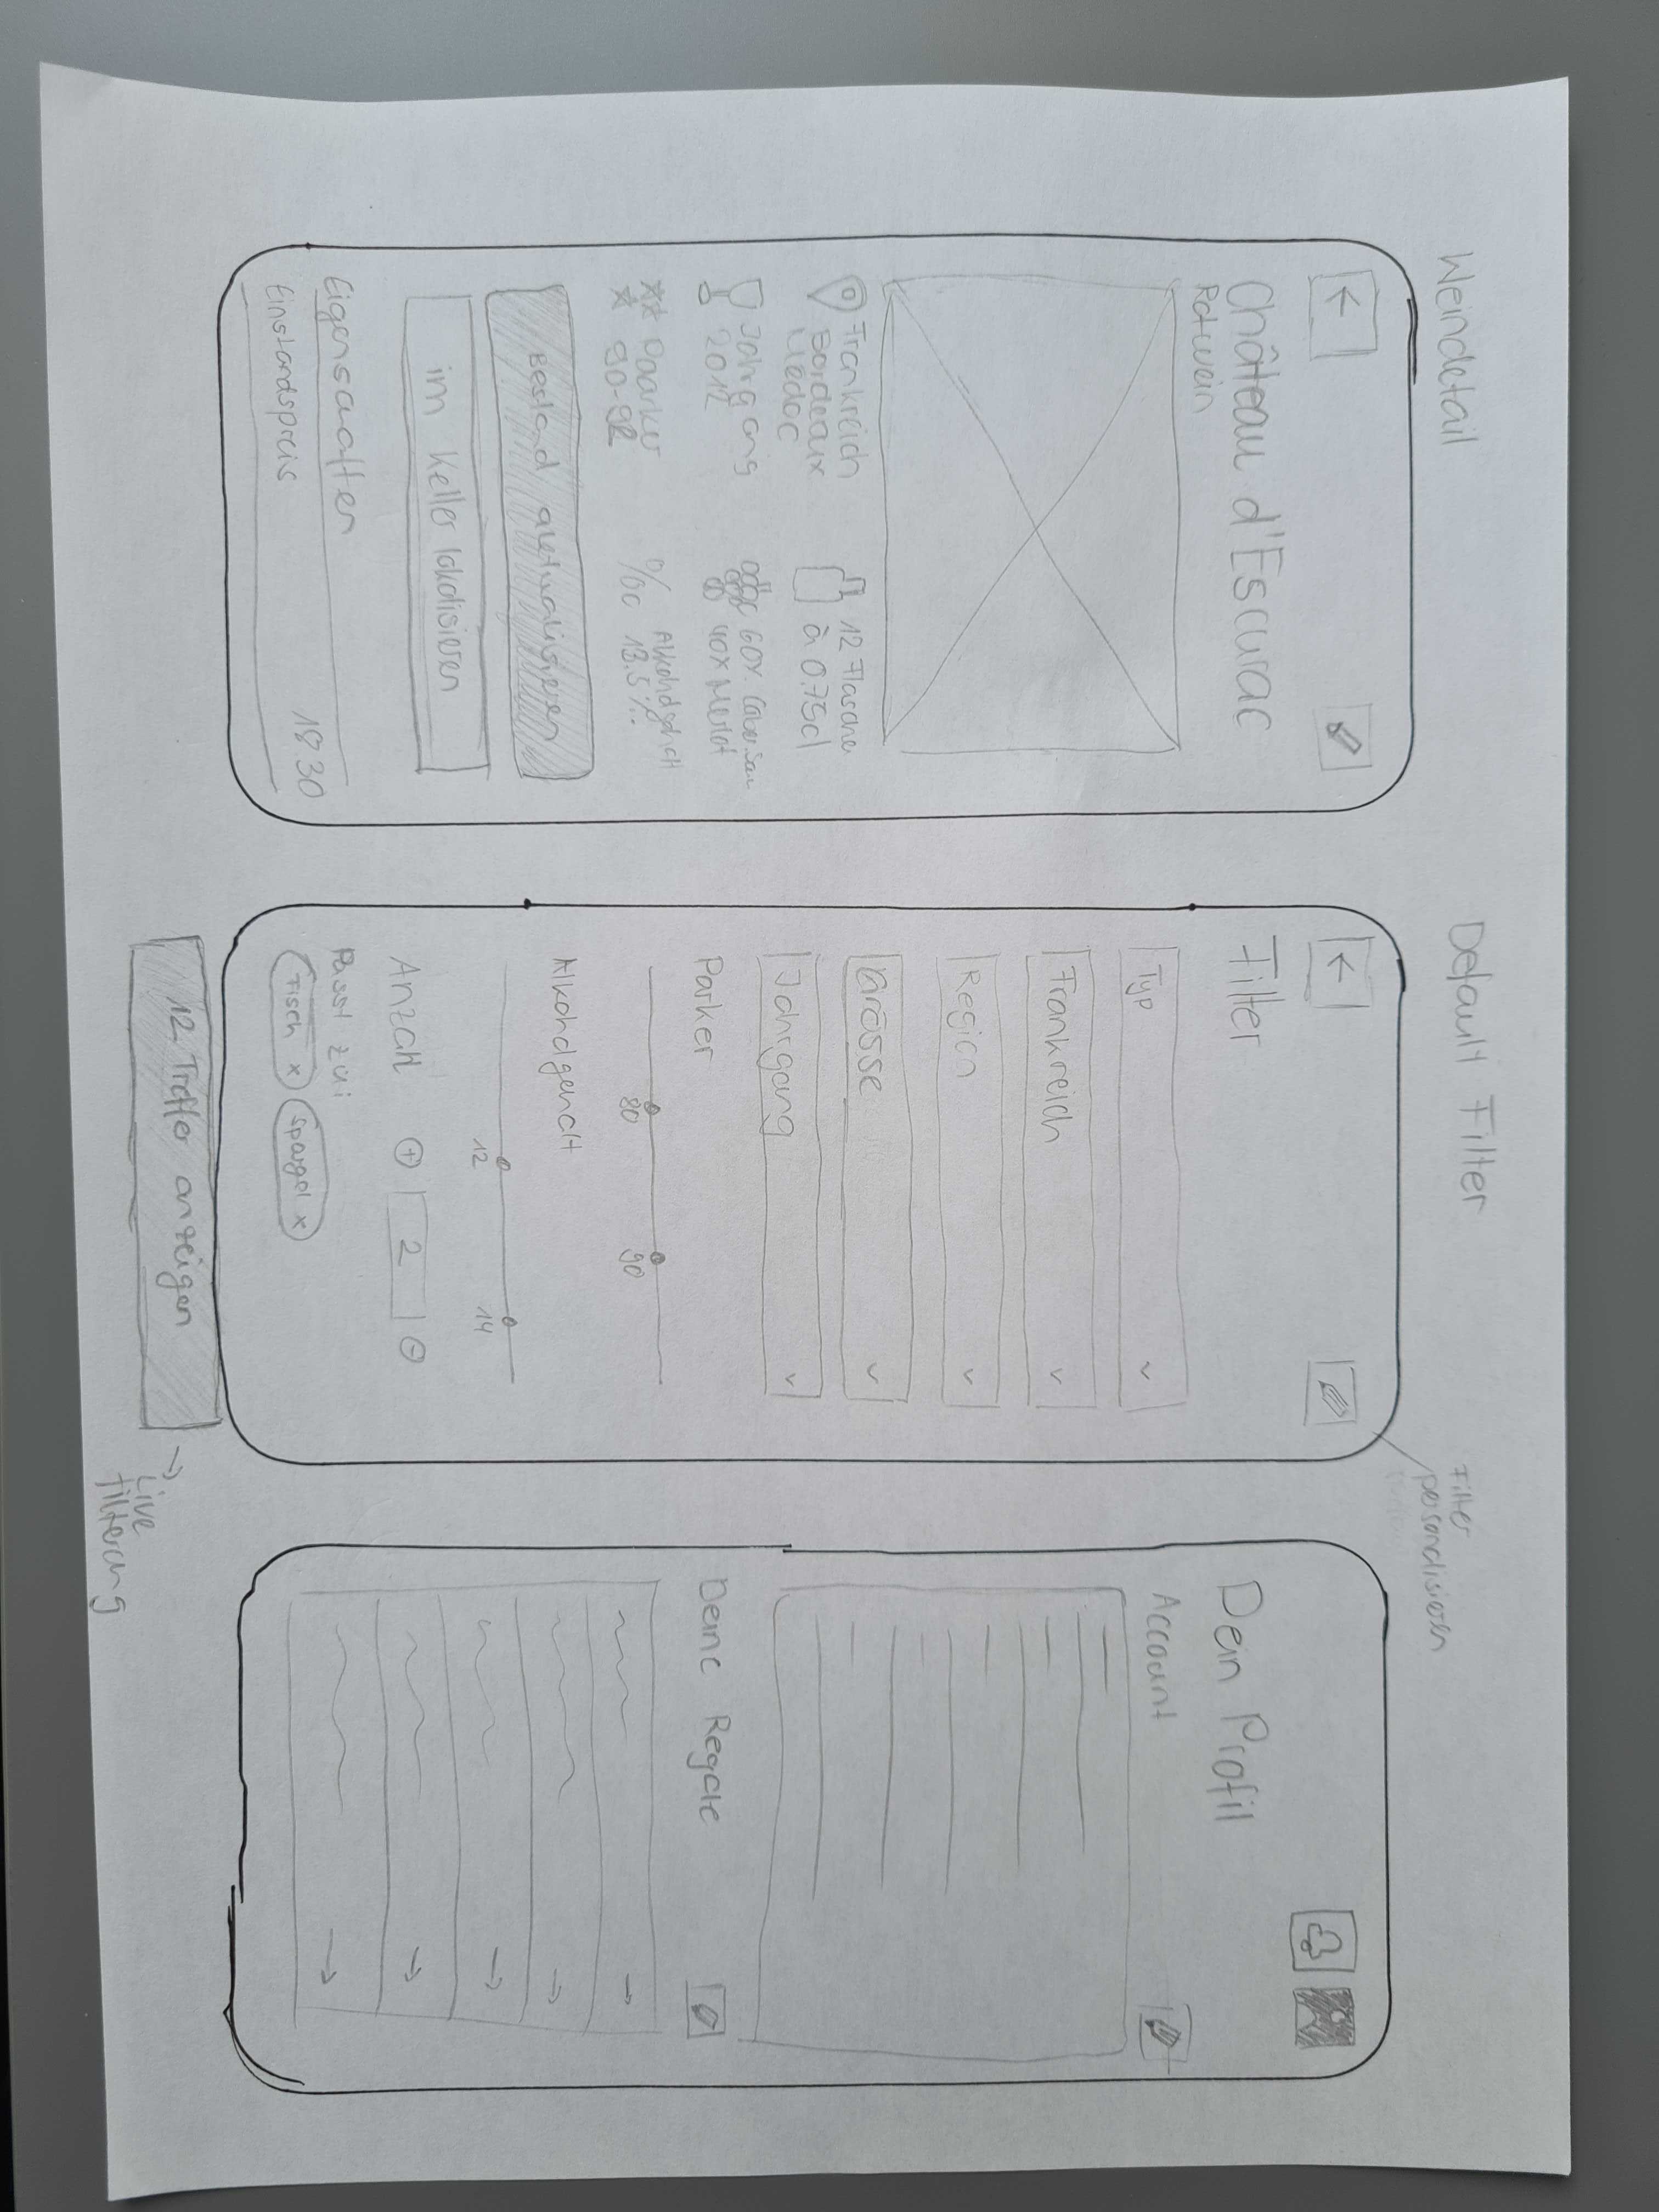 Weindetail
Château d'Escurac
Rotwein
Frankreich
Bordeaux
Médoc
12 Flasche
à 0.75cl
Jahrgang
2012
60% Caber.Sau
40% Merlot
Paarker
90-92
Alkoholgehalt
13.5%
Bestand aktualisieren
im Keller lokalisieren
Eigenschaften
Einstandspreis 18.30
Default Filter
Filter
personalisieren
Filter
Typ
Frankreich
Region
Grösse
Jahrgang
Parker
80 90
Alkoholgehalt
12 14
Anzahl + 2 -
Passt zu:
Fisch x Spargel x
12 Treffer anzeigen
Live
filterung
Dein Profil
Account
Deine Regale